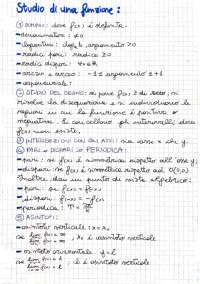 Studio di una funzione:
① DOMINIO: dove f(x) è definita.
-denominatore: ≠0
-logaritmi: log_a b, argomento >0
-radici pari: radice ≥0
-radici dispari: ∀x∈ℝ
-arcsen e arccos: -1≤ argomento ≤+1
-esponenziali:
② STUDIO DEL SEGNO: si pone f(x) ≥ di zero, si
risolve la disequazione e si individuano le
regioni in cui la funzione è positiva e
negativa. Si cancellano gli intervalli dove
f(x) non esiste.
③ INTERSEZIONI CON GLI ASSI: sia asse x che y.
④ PARI, DISPARI o PERIODICA:
-pari: se f(x) è simmetrica rispetto all'asse y;
-dispari: se f(x) è simmetrica rispetto ad O(0,0)
Inoltre dal punto di vista algebrico:
- pari: se f(-x) = f(x)
- dispari: f(-x) = -f(x)
- periodica: T =
⑤ ASINTOTI:
- asintoto verticale: x = x₀
se lim f(x) = ∞, x₀ è asintoto verticale
- asintoto orizzontale y = l
se lim f(x) = l, l è asintoto